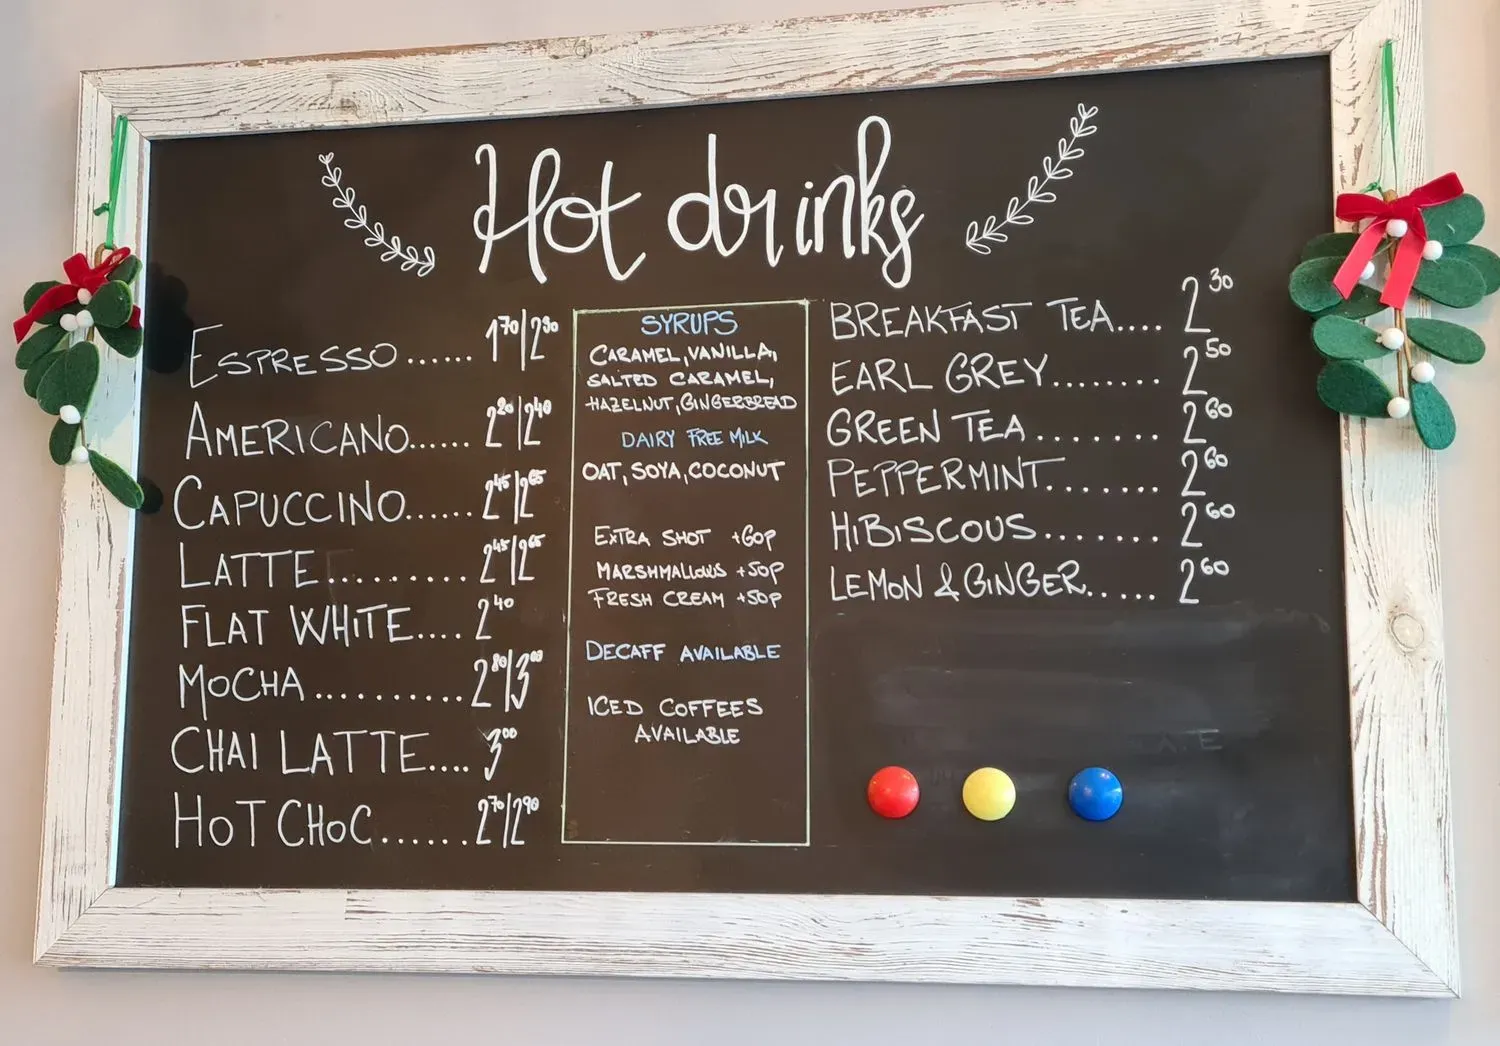 Hot drinks
ESPRESSO...... 1⁷⁰/2³⁰
AMERICANO...... 2²⁰/2⁴⁰
CAPUCCINO...... 2⁴⁵/2⁶⁵
LATTE.......... 2⁴⁵/2⁶⁵
FLAT WHITE.... 2⁴⁰
MOCHA.......... 2⁸⁰/3⁰⁰
CHAI LATTE.... 3⁰⁰
HOT CHOC...... 2⁷⁰/2⁹⁰
SYRUPS
CARAMEL, VANILLA,
SALTED CARAMEL,
HAZELNUT, GINGERBREAD
DAIRY FREE MILK
OAT, SOYA, COCONUT
EXTRA SHOT +60P
MARSHMALLOWS +50P
FRESH CREAM +50P
DECAFF AVAILABLE
ICED COFFEES
AVAILABLE
BREAKFAST TEA.... 2³⁰
EARL GREY........ 2⁵⁰
GREEN TEA....... 2⁶⁰
PEPPERMINT....... 2⁶⁰
HIBISCOUS....... 2⁶⁰
LEMON & GINGER..... 2⁶⁰